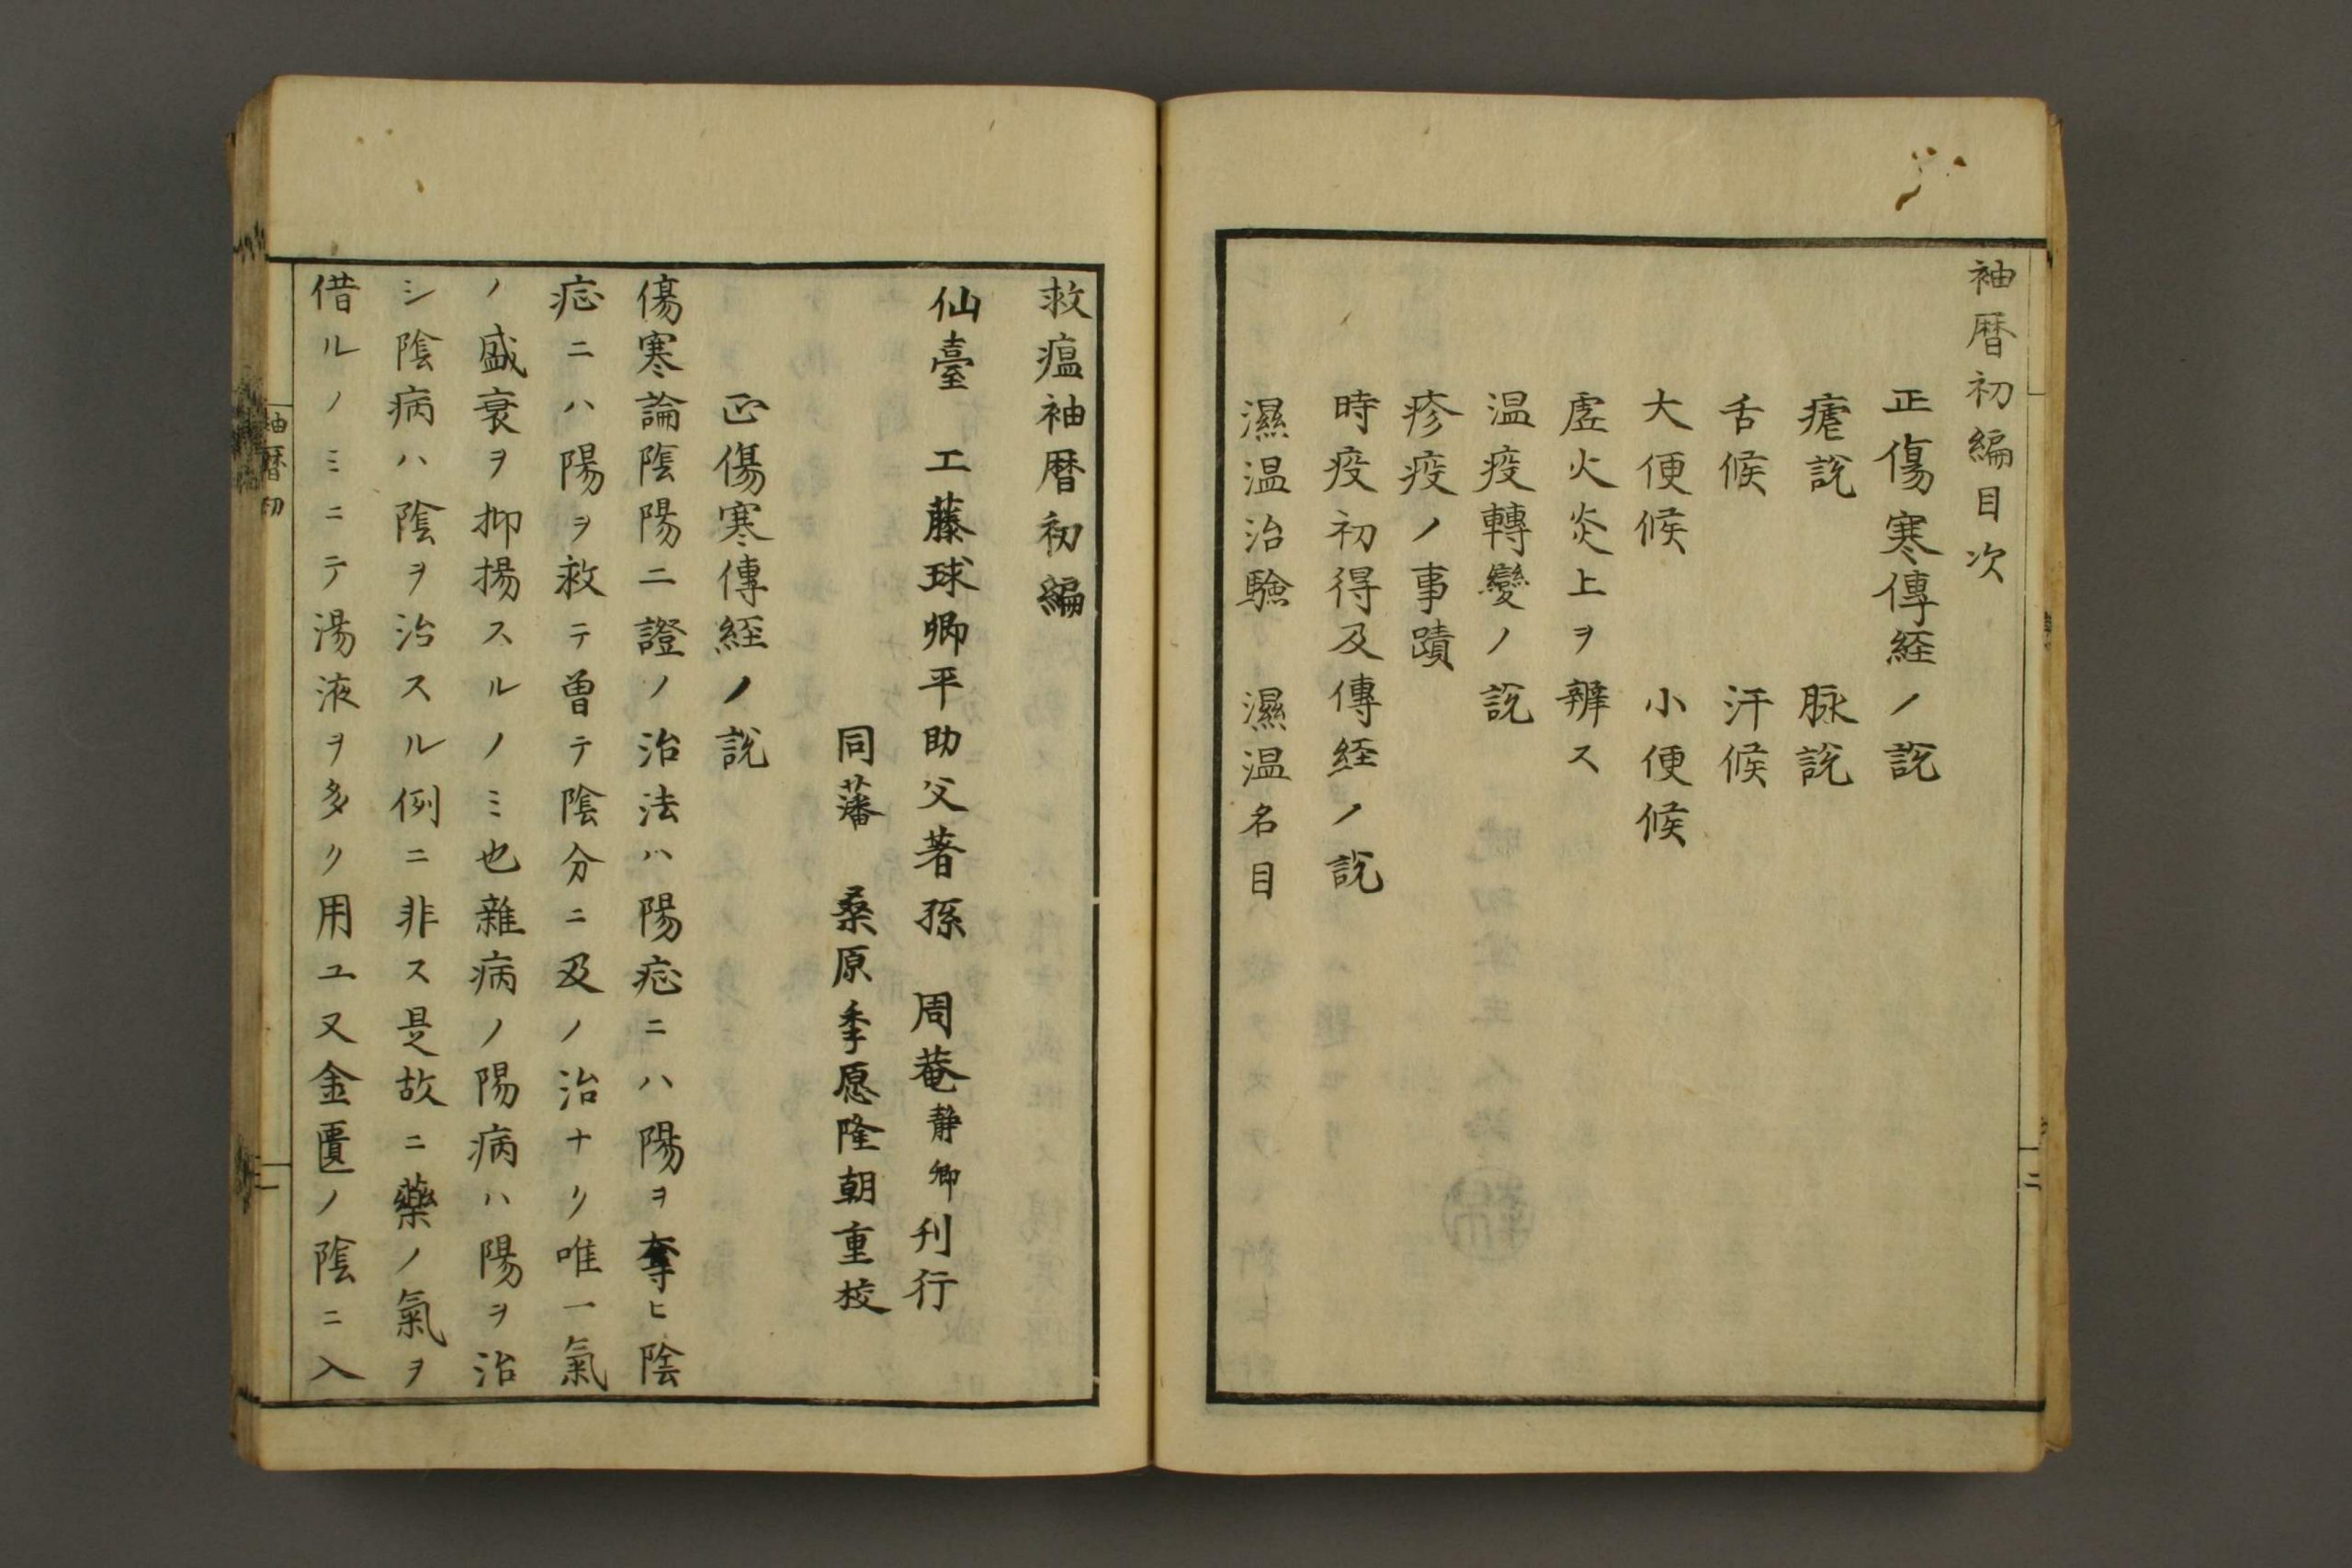 袖暦初編目次
正傷寒傳経ノ說
瘧說　脉說
舌候　汗候
大便候　小便候
虗火炎上ヲ辨ス
温疫轉變ノ說
疹疫ノ事蹟
時疫初得及傳経ノ說
濕温治驗　濕温名目
二
救瘟袖暦初編
仙臺　工藤球卿平助父著孫　周菴静卿刋行
同藩　桑原季愿隆朝重校
正傷寒傳経ノ說
傷寒論陰陽二證ノ治法ハ陽症ニハ陽ヲ奪ヒ陰
症ニハ陽ヲ救テ曽テ陰分ニ及ノ治ナリ唯一氣
ノ盛衰ヲ抑揚スルノミ也雜病ノ陽病ハ陽ヲ治
シ陰病ハ陰ヲ治スル例ニ非ス是故ニ藥ノ氣ヲ
借ルノミニテ湯液ヲ多ク用ユ又金匱ノ陰ニ入
袖暦初